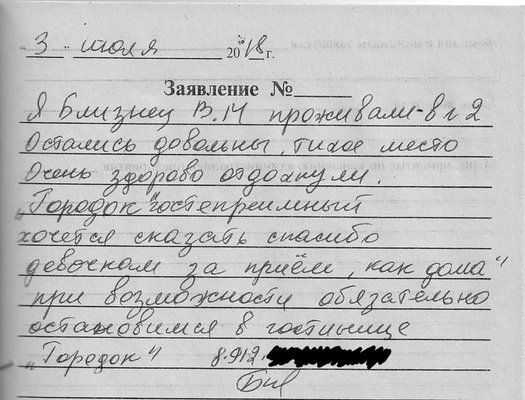 3 июля 2018 г.
Заявление №
Я Близнец В.М проживали в г 2
Остались довольны, тихое место
Очень здорово отдохнули.
„Городок" гостепреимный
хочется сказать спасибо
девочкам за приём, как дома"
при возможности обязательно
остановимся в гостинице
„Городок" 8.912.